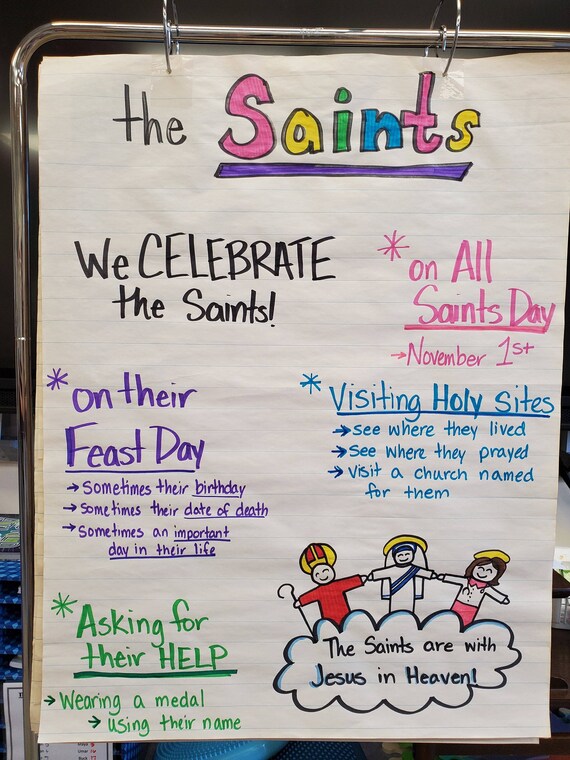 the Saints
We CELEBRATE
the Saints!
* on All
Saints Day
→ November 1st
* on their
Feast Day
→ Sometimes their birthday
→ Sometimes their date of death
→ Sometimes an important
day in their life
* Visiting Holy Sites
→ see where they lived
→ see where they prayed
→ visit a church named
for them
* Asking for
their HELP
→ Wearing a medal
→ using their name
The Saints are with
Jesus in Heaven!